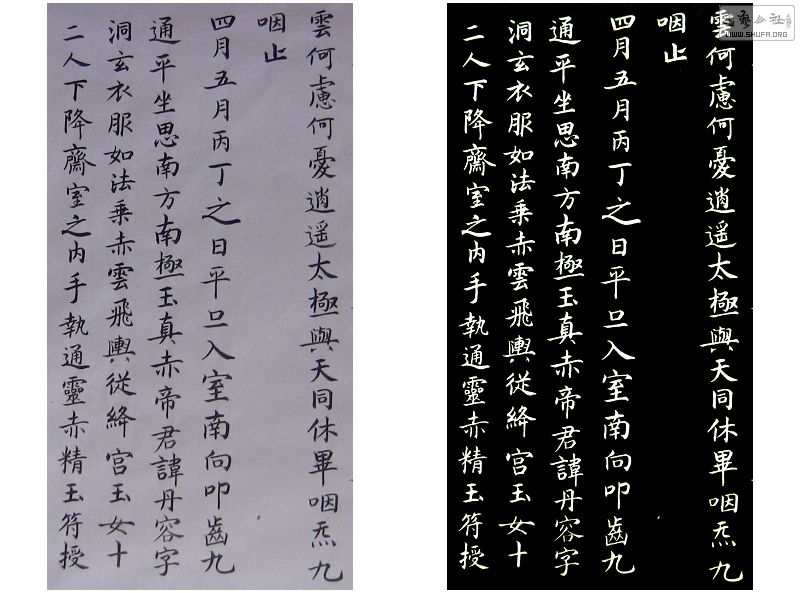 雲何慮何憂逍遥太極與天同休畢咽炁九
咽止
四月五月丙丁之日平旦入室南向叩齒九
通平坐思南方南極玉真赤帝君諱丹容字
洞玄衣服如法乗赤雲飛輿従絳宫玉女十
二人下降齋室之内手執通靈赤精玉符授
雲何慮何憂逍遥太極與天同休畢咽炁九
咽止
四月五月丙丁之日平旦入室南向叩齒九
通平坐思南方南極玉真赤帝君諱丹容字
洞玄衣服如法乗赤雲飛輿従絳宫玉女十
二人下降齋室之内手執通靈赤精玉符授
WWW.SHUFA.ORG